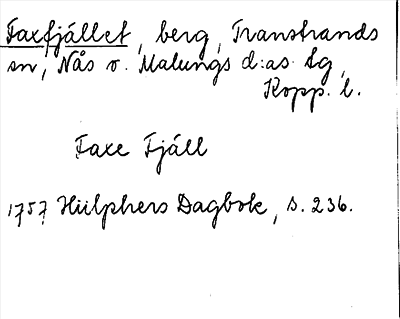 Faxfjället, berg, Transtrands
sn, Nås o. Malungs d:as tg,
Kopp. l.
Faxe Fjäll
1757 Hülphers Dagbok, s. 236.